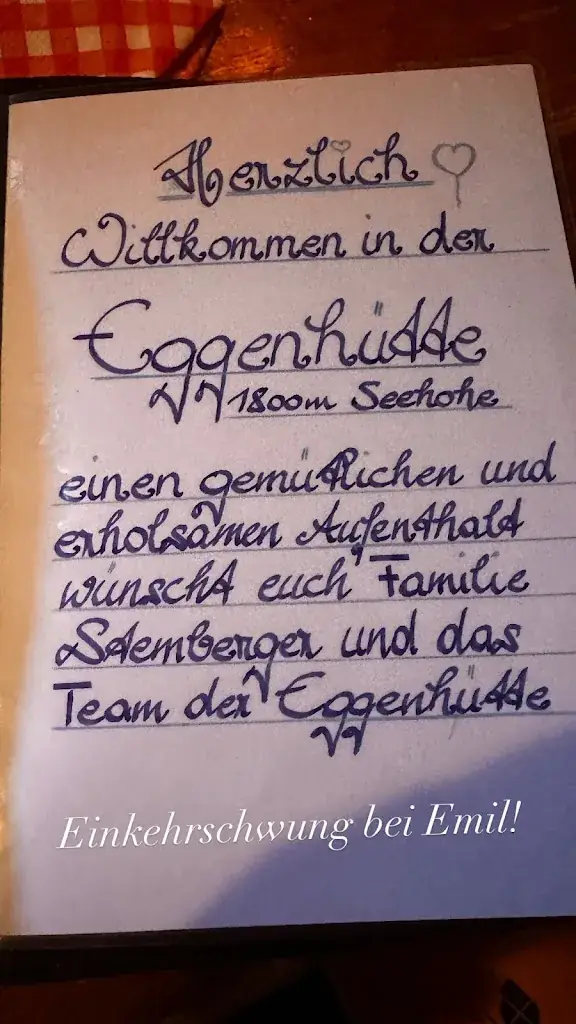 Herzlich
Willkommen in der
Eggenhütte
1800m Seehohe
einen gemütlichen und
erholsamen Aufenthalt
wünscht euch Familie
Stemberger und das
Team der Eggenhütte
Einkehrschwung bei Emil!